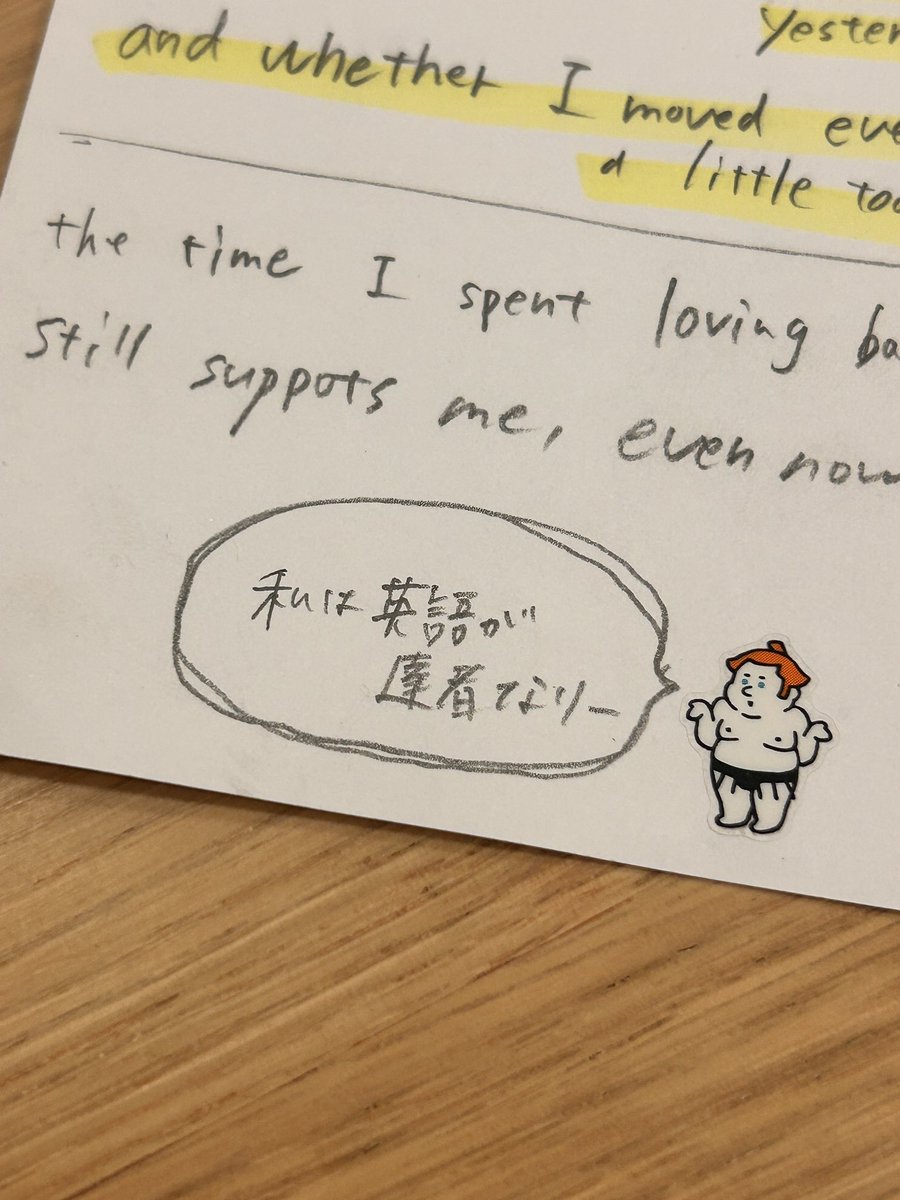 Yester
and whether I moved eve
a little too
the time I spent loving ba
still suppots me, even now
私は英語が
達者なりー